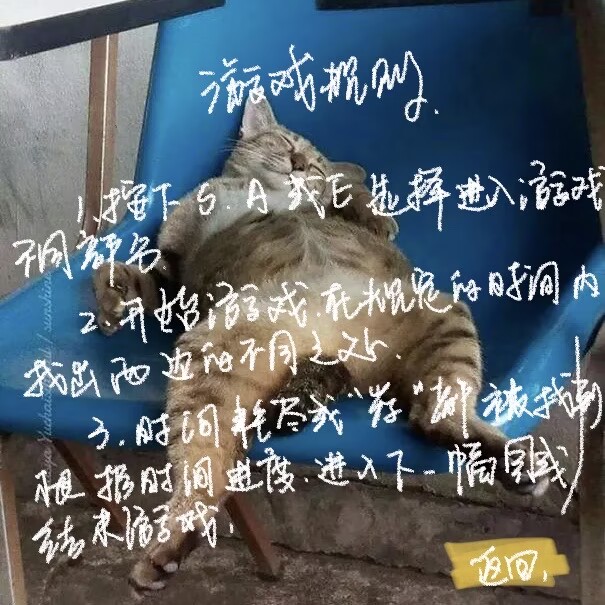 游戏规则.
1.按下 S.A 或E选择进入游戏
不同部分.
2.开始游戏.在规定的时间内
找出两边的不同之处.
3.时间耗尽或"茬"都被找到
根据时间进度.进入下一幅图或
结束游戏.
返回.